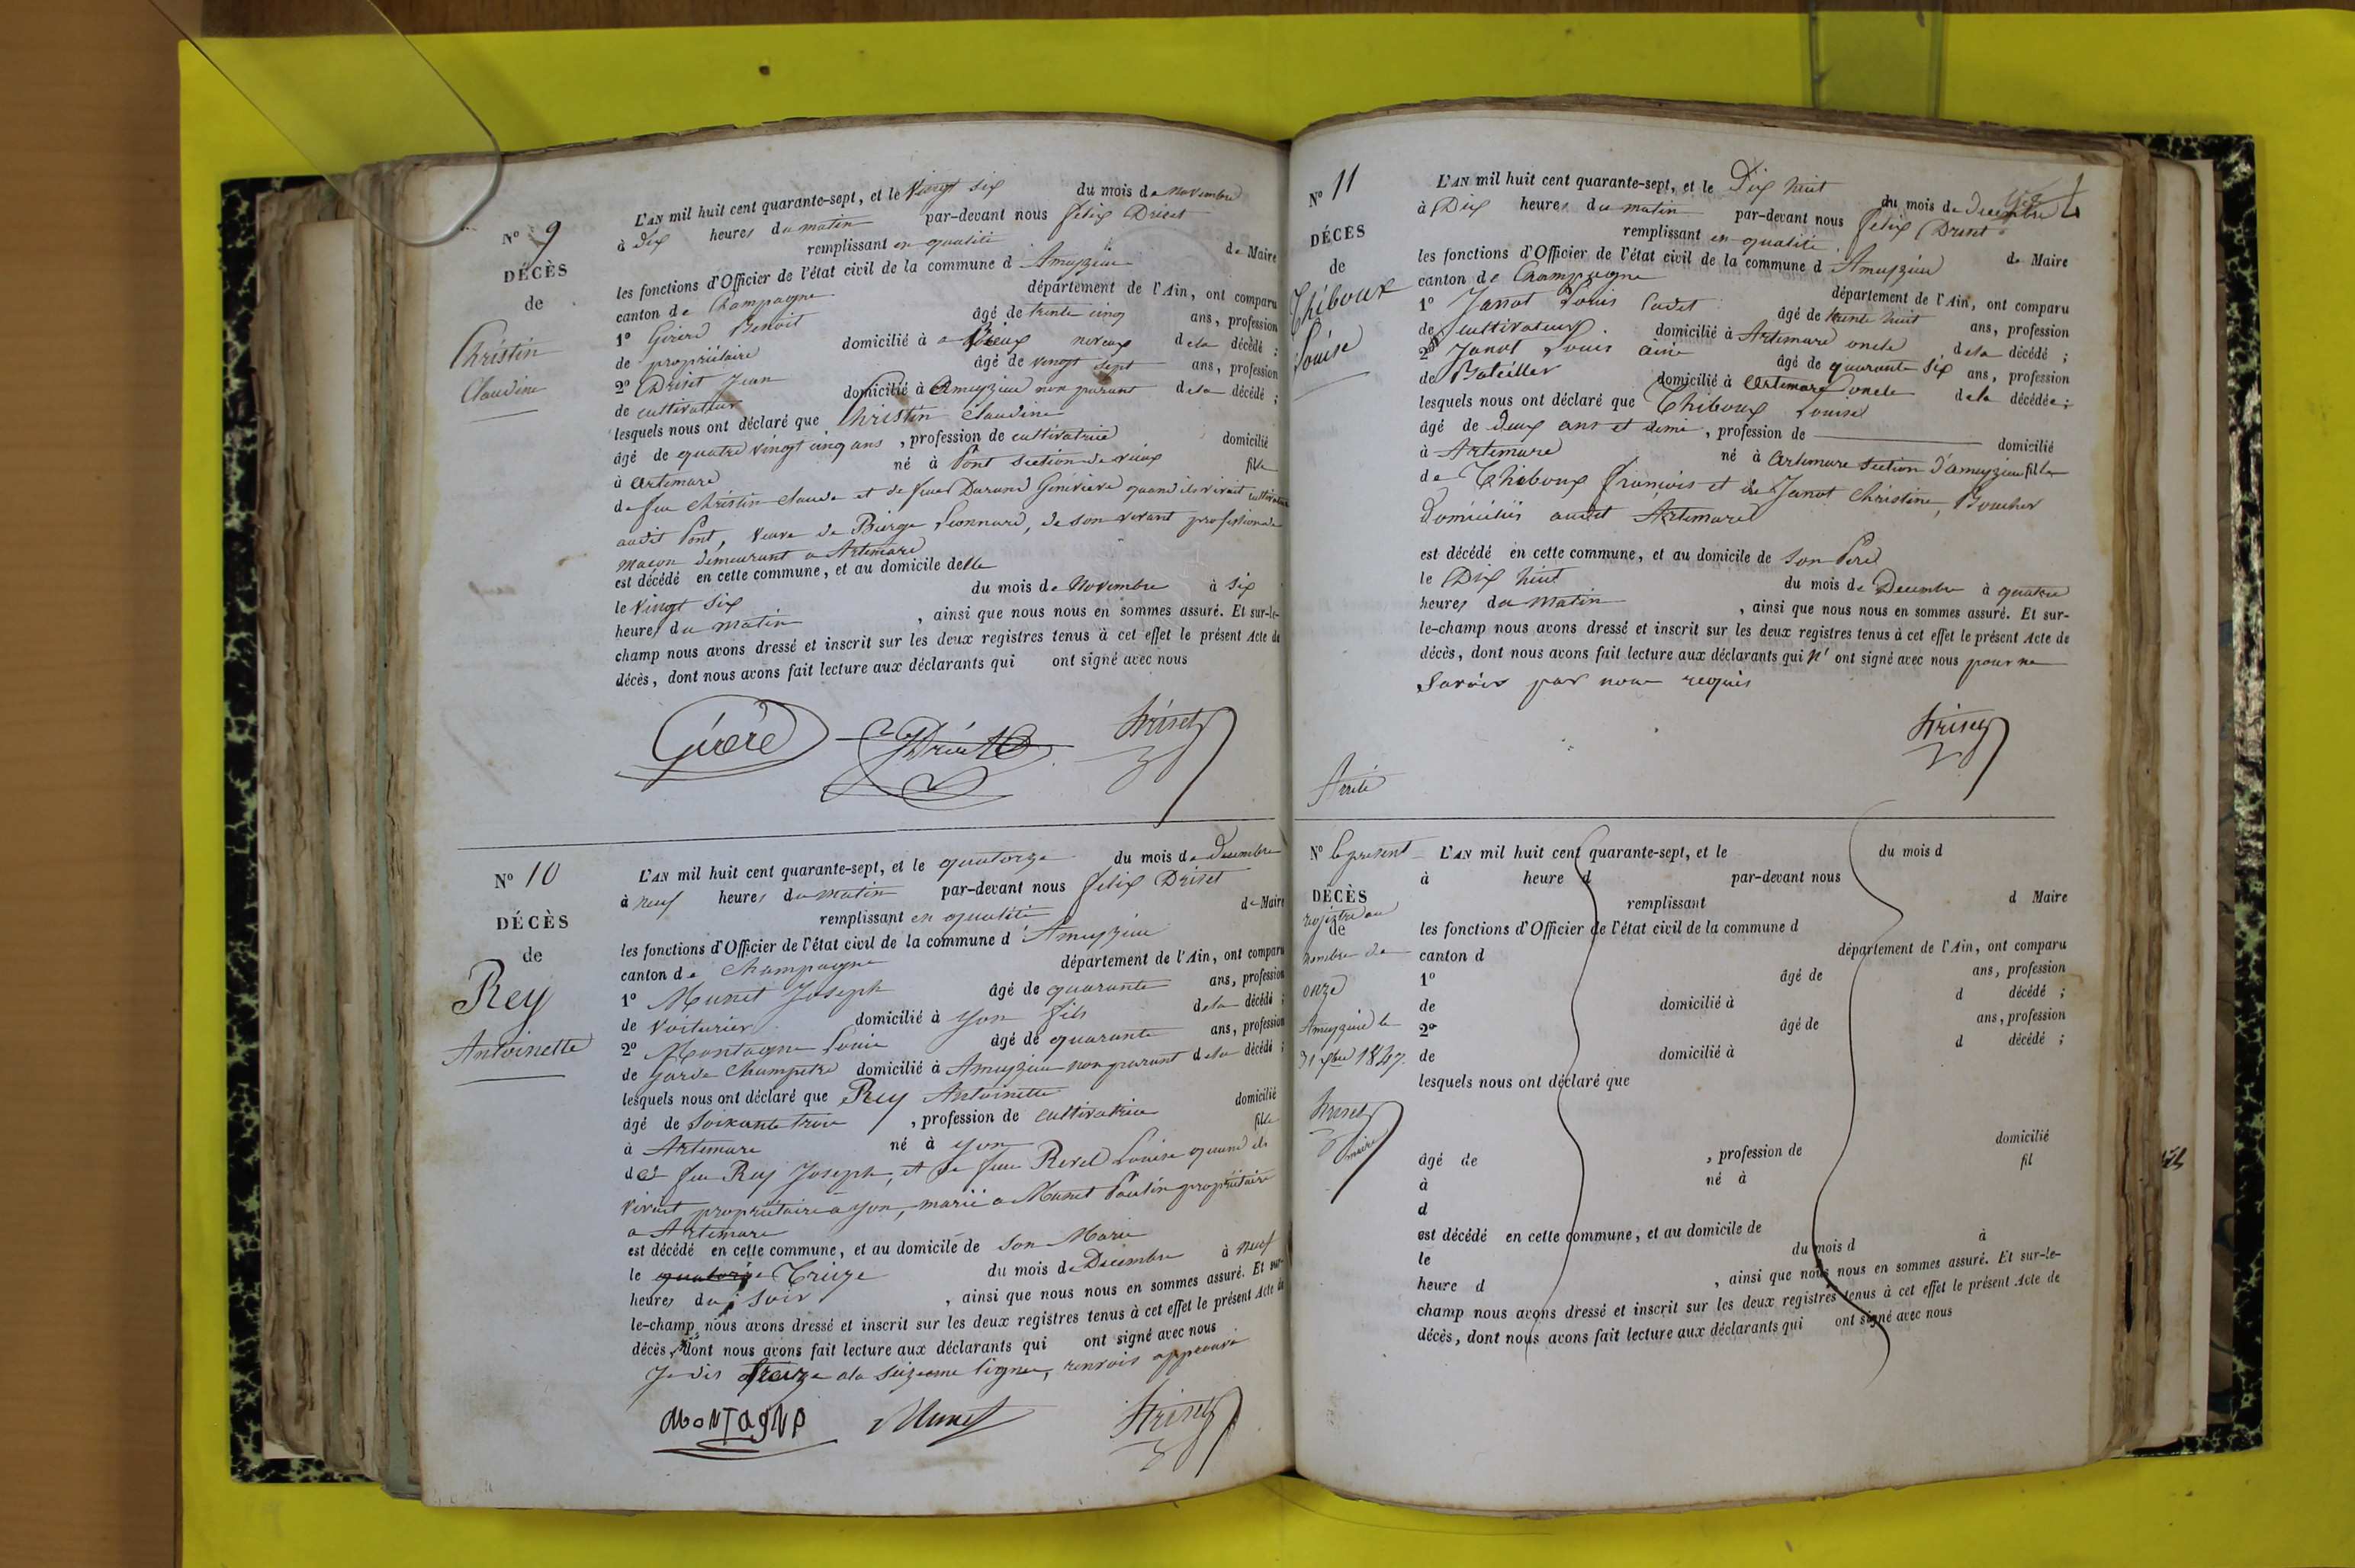 N° 9
DÉCÈS
de
Christin
Claudine
L'AN mil huit cent quarante-sept, et le vingt six du mois de novembre
à dix heures du matin par-devant nous felix Driset
remplissant en qualité de Maire
les fonctions d'Officier de l'état civil de la commune d'Ameyzieu
canton de Champagne département de l'Ain, ont comparu
1° Géréré Benoit âgé de trente cinq ans, profession
de propriétaire domicilié à a Vieux neveux de la décédé ;
2° Driset Jean âgé de vingt sept ans, profession
de cultivateur domicilié à Ameyzieu non parant de la décédé ;
lesquels nous ont déclaré que Christin Claudine
âgé de quatre vingt cinq ans, profession de cultivatrice domicilié
à Artemare né à Pont section de vieux fille
de feu Christin Claude et de feue Durand Genevieve quand ils vivait
audit Pont, veuve de Léonnard, de son vivant profession de
maçon demeurant a Artemare
est décédé en cette commune, et au domicile delle
le vingt six du mois de Novembre à six
heures du matin, ainsi que nous nous en sommes assuré. Et sur-le-
champ nous avons dressé et inscrit sur les deux registres tenus à cet effet le présent Acte de
décès, dont nous avons fait lecture aux déclarants qui ont signé avec nous
Géréré Driset Driset
N° 10
DÉCÈS
de
Rey
Antoinette
L'AN mil huit cent quarante-sept, et le quatorze du mois de decembre
à neuf heures du matin par-devant nous felix Driset
remplissant en qualité de Maire
les fonctions d'Officier de l'état civil de la commune d'Ameyzieu
canton de Champagne département de l'Ain, ont comparu
1° Munet Joseph âgé de quarante ans, profession
de voiturier domicilié à yon fils de la décédé ;
2° Montagne Louis âgé de quarante ans, profession
de garde Champetre domicilié à Ameyzieu non parant de la décédé ;
lesquels nous ont déclaré que Rey Antoinette
âgé de soixante trois, profession de cultivatrice domicilié
à Artemare né à yon fille
de feu Rey Joseph, et de feue Revel Louise quand ils
vivait propriétaire à yon, marié a Munet propriétaire
a Artemare
est décédé en cette commune, et au domicile de son Marie
le quatorze Treize du mois de Decembre à neuf
heures du soir, ainsi que nous nous en sommes assuré. Et sur-
le-champ nous avons dressé et inscrit sur les deux registres tenus à cet effet le présent Acte de
décès, dont nous avons fait lecture aux déclarants qui ont signé avec nous
Je dis treize a la seizieme ligne, renvois approuvé
MONTAGNE Munet Driset
N° 11
DÉCÈS
de
Thiboux
Louise
L'AN mil huit cent quarante-sept, et le Dix huit du mois de Decembre
à Dix heures du matin par-devant nous felix Driset
remplissant en qualité de Maire
les fonctions d'Officier de l'état civil de la commune d'Ameyzieu
canton de Champagne département de l'Ain, ont comparu
1° Janot Louis Cadet âgé de trente huit ans, profession
de cultivateur. domicilié à Artemare oncle de la décédé ;
2° Janot Louis ainé âgé de quarante six ans, profession
de Batellier domicilié à Artemare oncle de la décédée ;
lesquels nous ont déclaré que Thiboux Louise
âgé de deux ans et demi, profession de domicilié
à Artemare né à Artemare section d'ameyzieu fille
de Thiboux françois et de Janot Christine, Boucher
domiciliés audit Artemare
est décédé en cette commune, et au domicile de son Père
le Dix huit du mois de Decembre à quatre
heures du matin, ainsi que nous nous en sommes assuré. Et sur-
le-champ nous avons dressé et inscrit sur les deux registres tenus à cet effet le présent Acte de
décès, dont nous avons fait lecture aux déclarants qui n'ont signé avec nous pour ne
savoir par nous requis
Driset
Arrêté
N° le présent
DÉCÈS
registre au
de
nombre de
onze
Ameyzieu le
31 xbre 1847.
Driset
maire
L'AN mil huit cent quarante-sept, et le du mois d
à heure d par-devant nous
remplissant d Maire
les fonctions d'Officier de l'état civil de la commune d
canton d département de l'Ain, ont comparu
1° âgé de ans, profession
de domicilié à d décédé ;
2° âgé de ans, profession
de domicilié à d décédé ;
lesquels nous ont déclaré que
âgé de , profession de domicilié
à né à fil
d
est décédé en cette commune, et au domicile de
le du mois d à
heure d , ainsi que nous nous en sommes assuré. Et sur-le-
champ nous avons dressé et inscrit sur les deux registres tenus à cet effet le présent Acte de
décès, dont nous avons fait lecture aux déclarants qui ont signé avec nous